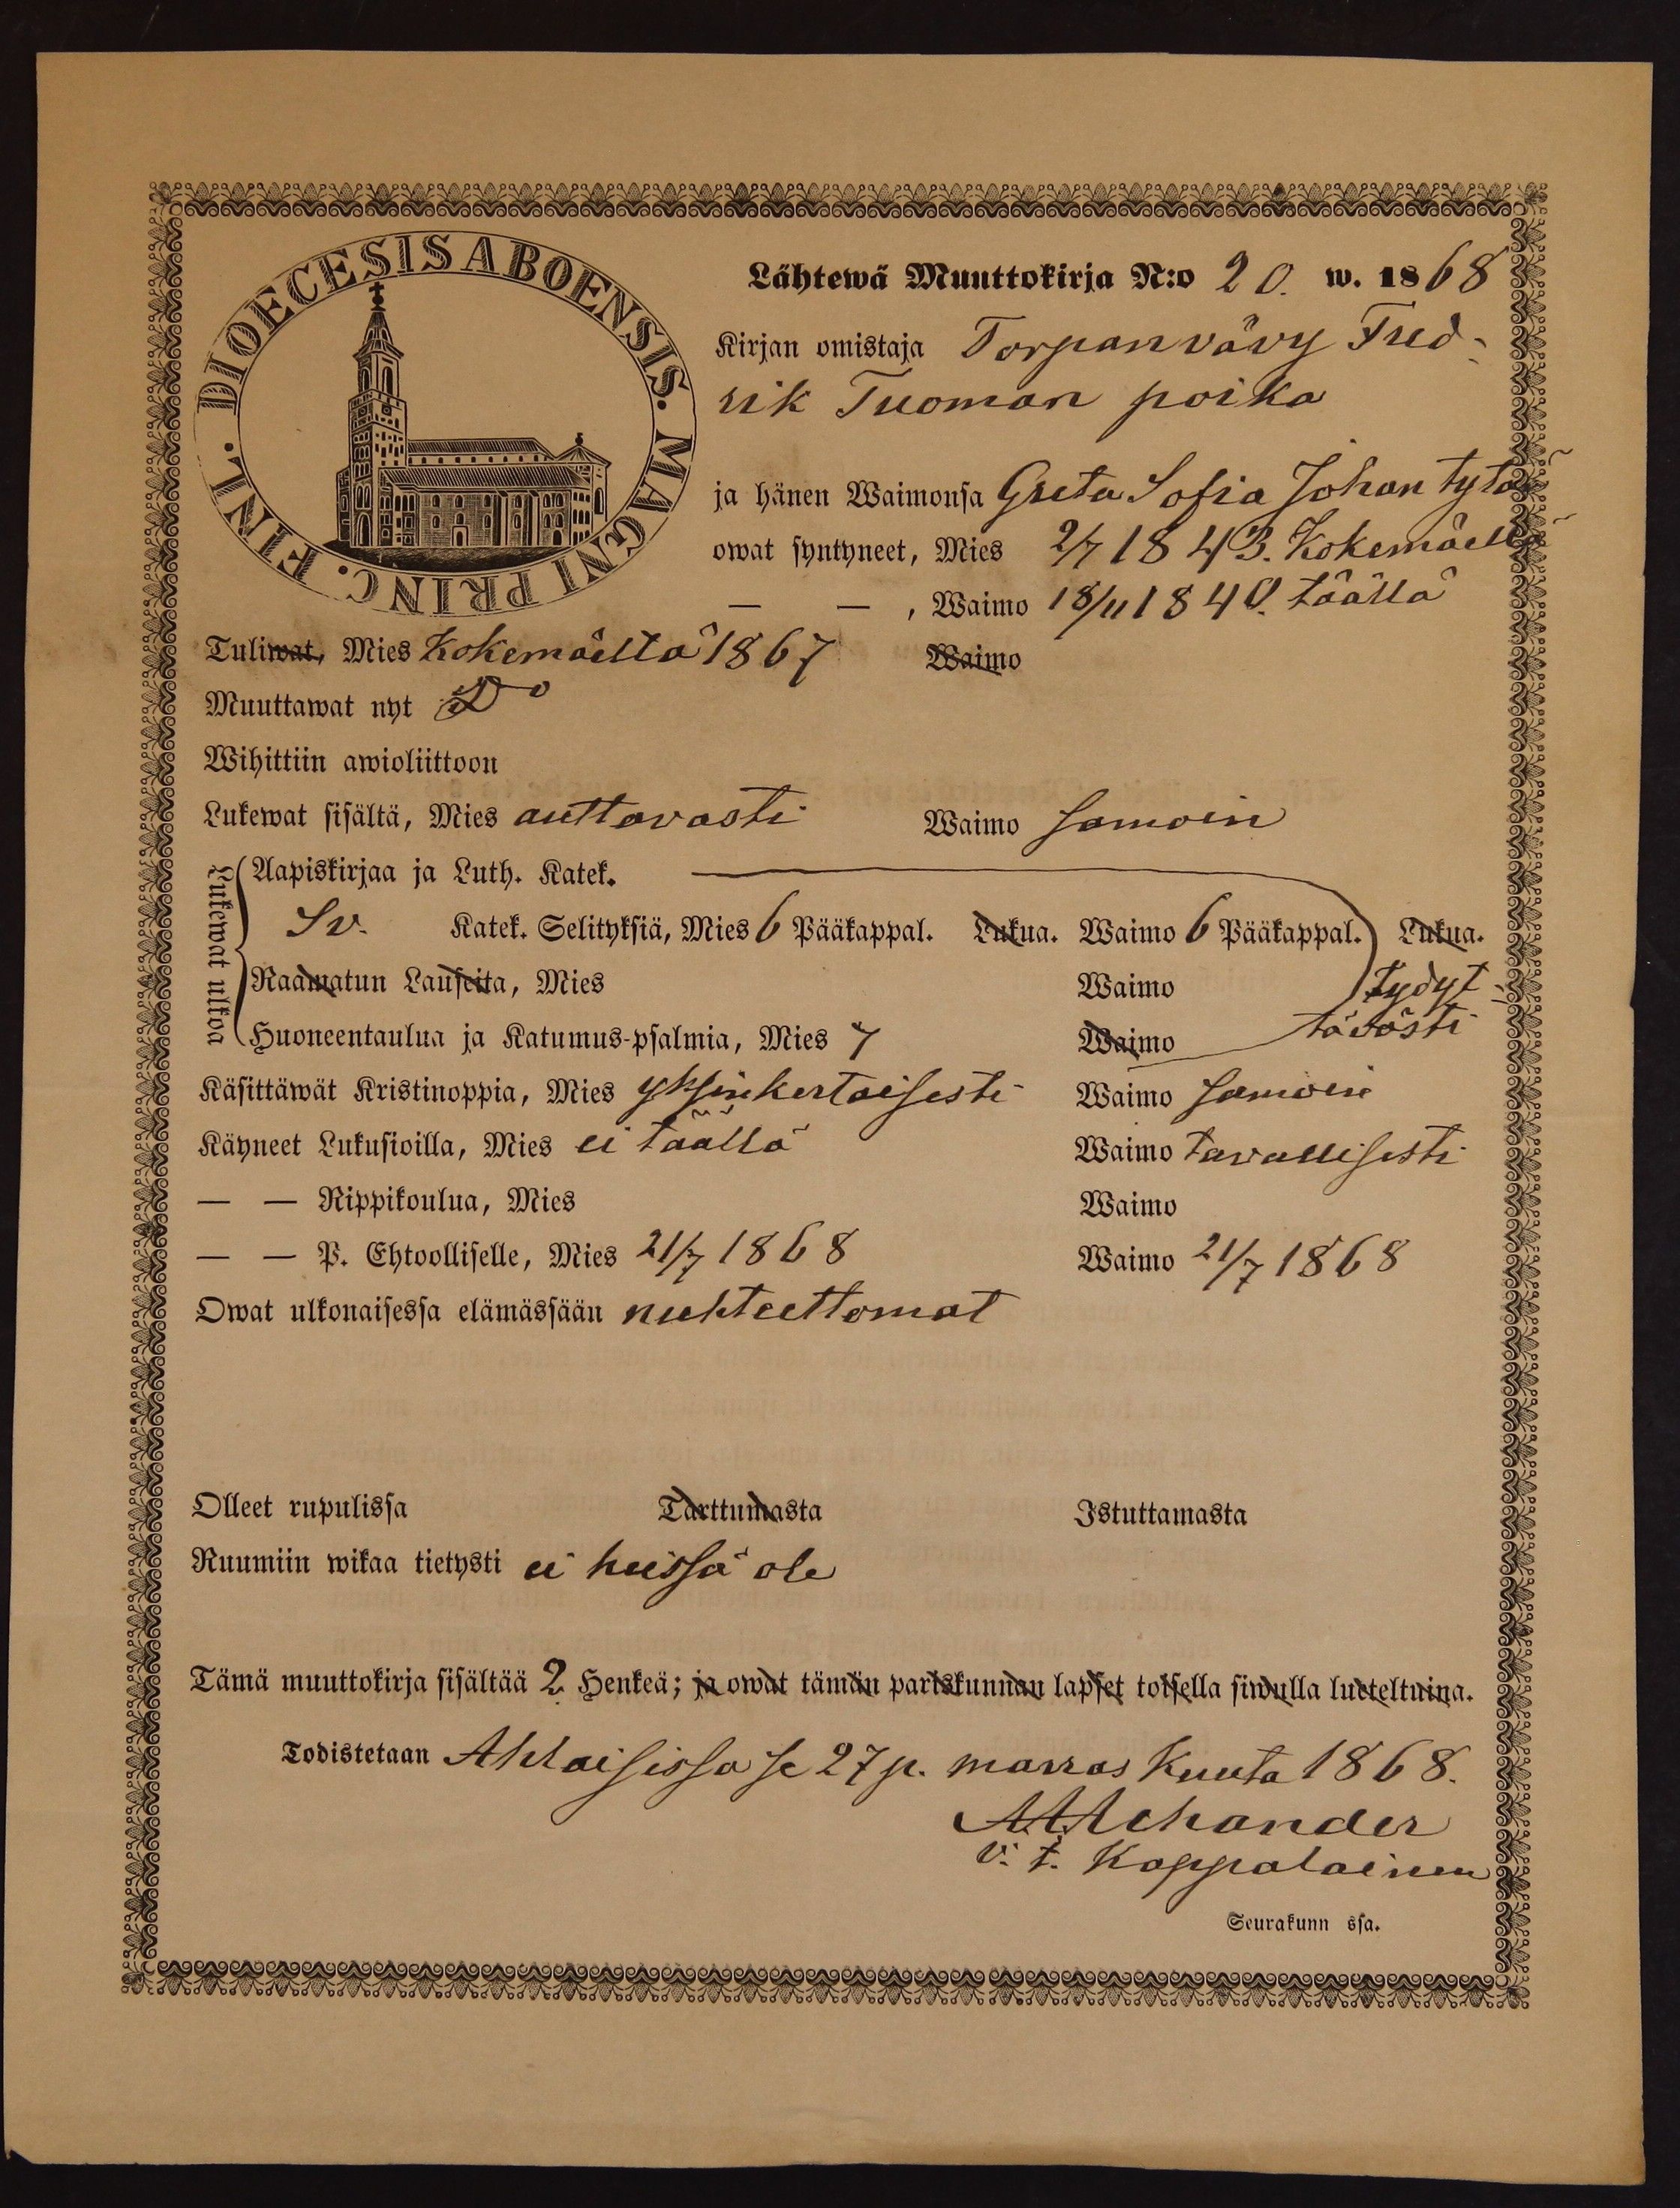 DIOECESIS ABOENSIS. MAGNI PRINC. FINL.
Lähtewä Muuttokirja N:o 20. w. 1868
Kirjan omistaja Torpanvävy Fred-
rik Tuoman poika
ja hänen Waimonsa Greta Sofia Johan tytär
owat syntyneet, Mies 2/7 1843. Kokemäellä
— — , Waimo 18/11 1840. täällä
Tuliwat, Mies Kokemäeltä 1867 Waimo
Muuttawat nyt Do
Wihittiin awioliittoon
Lukewat sisältä, Mies auttavasti Waimo samoin
Lukewat ulkoa
Aapiskirjaa ja Luth. Katek.
Sv. Katek. Selityksiä, Mies 6 Pääkappal. Lukua. Waimo 6 Pääkappal. Lukua.
Raamatun Lauseita, Mies Waimo tydyt-
Huoneentaulua ja Katumus-psalmia, Mies 7 Waimo tävästi
Käsittäwät Kristinoppia, Mies yksinkertaisesti Waimo samoin
Käyneet Lukusioilla, Mies ei täällä Waimo tavallisesti
— — Rippikoulua, Mies Waimo
— — P. Ehtoolliselle, Mies 21/7 1868 Waimo 21/7 1868
Owat ulkonaisessa elämässään nuhteettomat
Olleet rupulissa Tarttumasta Istuttamasta
Ruumiin wikaa tietysti ei heissä ole
Tämä muuttokirja sisältää 2 Henkeä; ja owat tämän pariskunnan lapset toisella siwulla lueteltuina.
Todistetaan Ahlaisissa se 27 p. marras kuuta 1868.
v. t. Kappalainen
Seurakunn ssa.